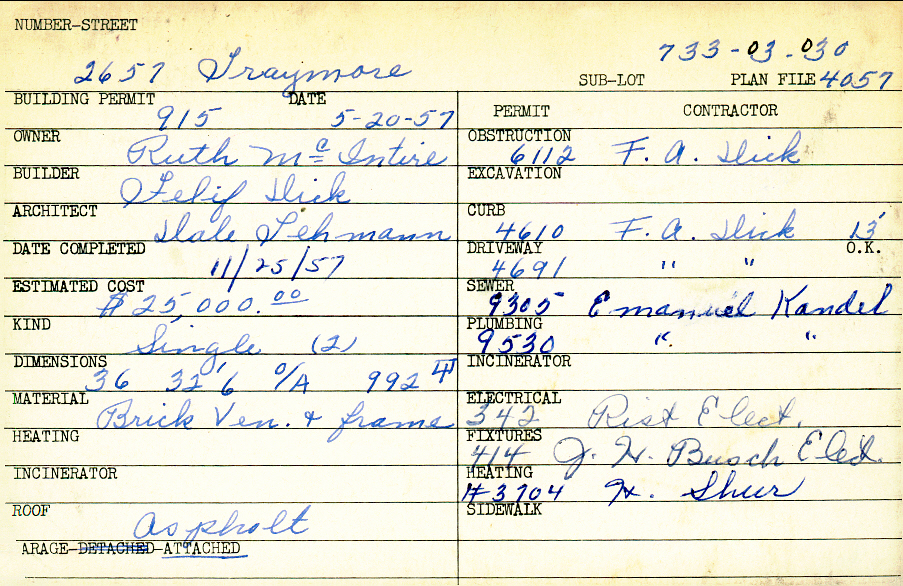 NUMBER-STREET
733-03-030
2657 Traymore SUB-LOT PLAN FILE 4057
BUILDING PERMIT DATE PERMIT CONTRACTOR
915 5-20-57
OWNER Ruth McIntire
OBSTRUCTION 6112 F. A. Dick
BUILDER Felif Dick
EXCAVATION
ARCHITECT Dale Lehmann
CURB 4610 F. A. Dick 13'
DATE COMPLETED 11/25/57
DRIVEWAY 4691 " " O.K.
ESTIMATED COST $25,000.00
SEWER 9305 Emanuel Kandel
KIND Single (2)
PLUMBING 9530 " "
DIMENSIONS 36 32'6 O/A 992
INCINERATOR
MATERIAL Brick Ven. & frame
ELECTRICAL 342 Rist Elect.
HEATING
FIXTURES 414 J. H. Busch Elect.
INCINERATOR
HEATING #3704 H. Shur
ROOF Aspholt
SIDEWALK
ARAGE-DETACHED-ATTACHED